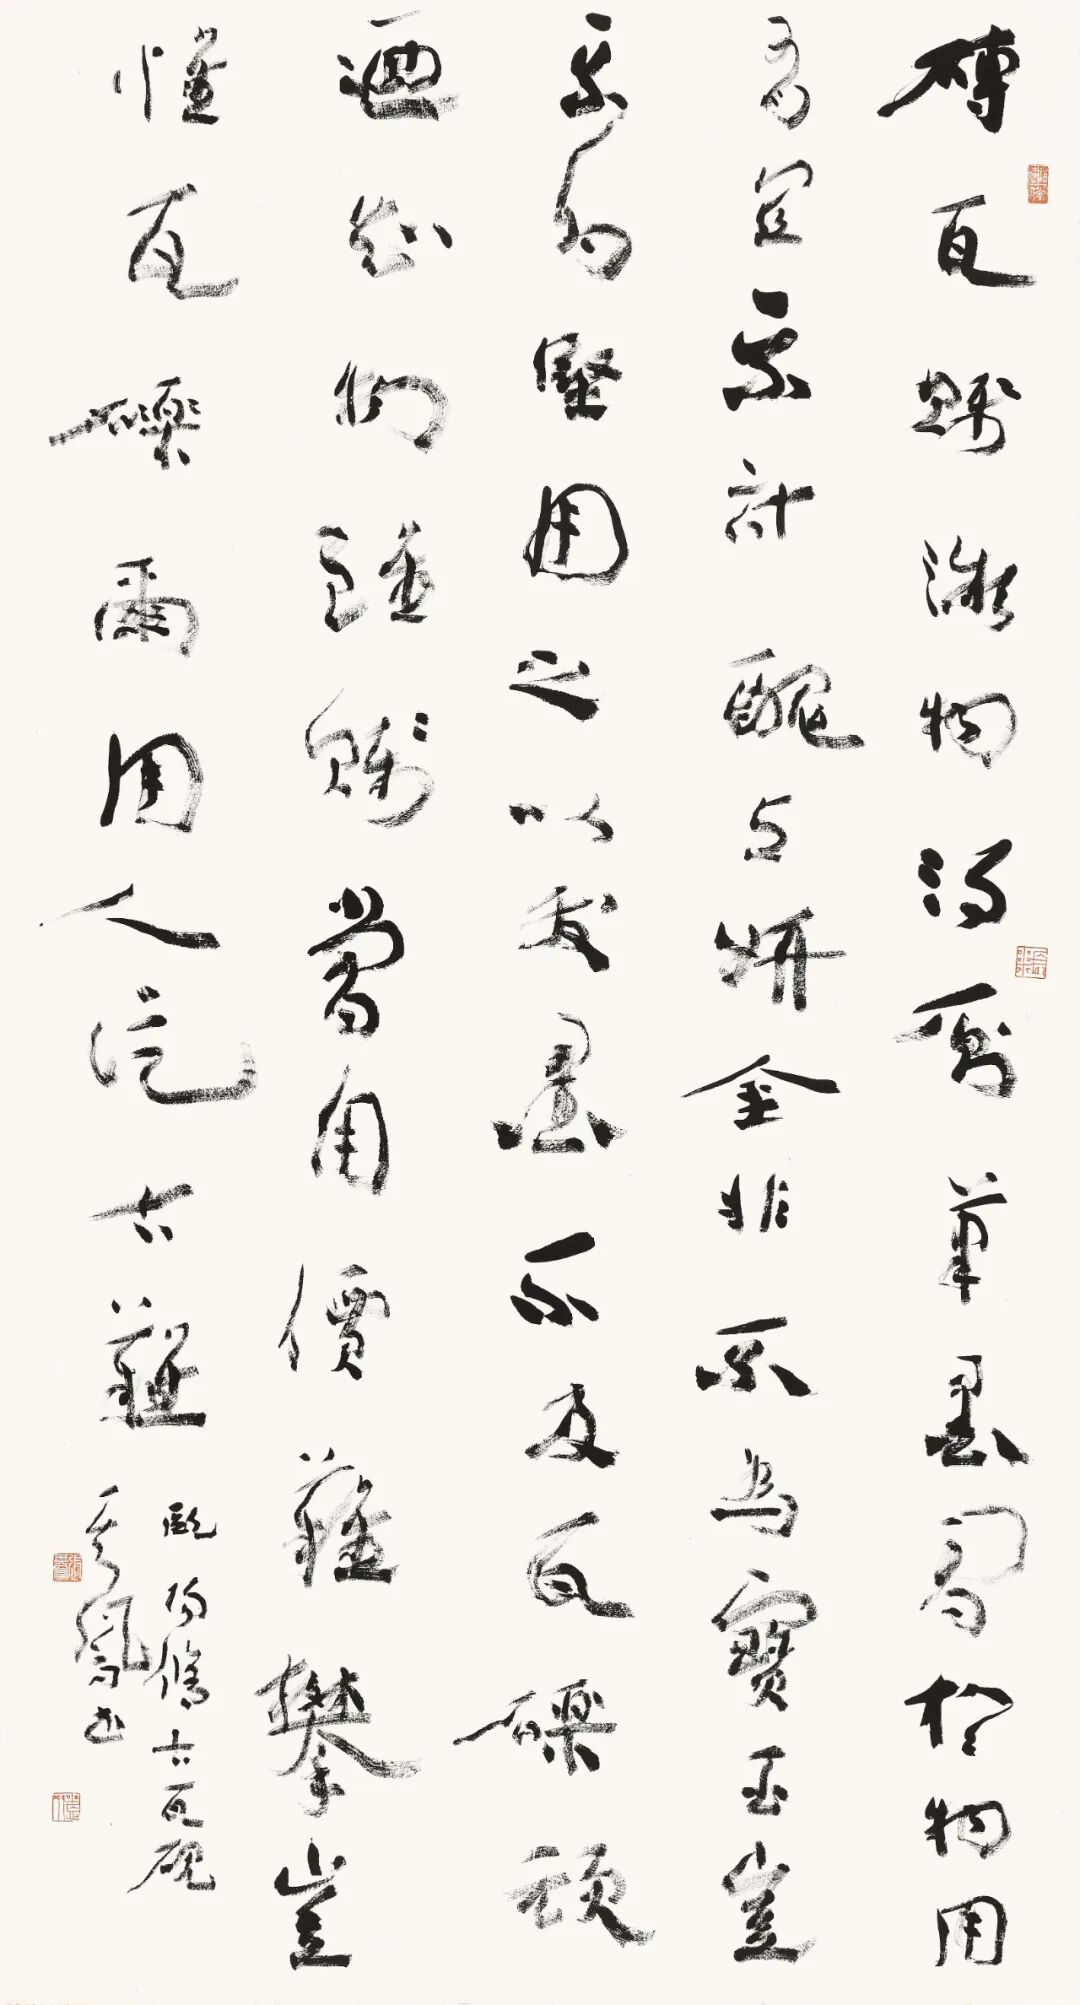 磚瓦賤微物得廁筆墨間於物用
有宜不計醜与妍金非不為寶玉豈
不為堅用之以發墨不及瓦礫頑
迺知物雖賤當用價難攀豈
惟瓦礫爾用人從古難
歐陽脩古瓦硯
其鳳書